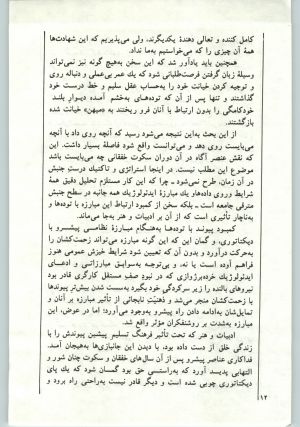 کامل کننده و تعالی دهندهٔ یکدیگرند، ولی می‌پذیریم که این شهادت‌ها
همهٔ آن چیزی را که می‌خواستیم به‌ما نداد.
همچنین باید یادآور شد که این سخن به‌هیچ گونه نیز نمی‌تواند
وسیلهٔ زبان گرفتن فرصت‌طلبانی شود که یك عمر بی‌عملی و دنباله روی
و توجیه کردن خیانت خود را به‌حساب عقل سلیم و خط درست خود
گذاشتند و تنها پس از آن که توده‌های به‌خشم آمده دیوار بلند
خودکامگی را بدون ارتباط با آنان فرو ریختند به «میهن» خیانت شده
بازگشتند.
از این بحث به‌این نتیجه می‌شود رسید که آنچه روی داد با آنچه
می‌بایست روی دهد و می‌توانست واقع شود فاصلهٔ بسیار داشت. این
که نقش عنصر آگاه در آن دوران سکوت خفقانی چه می‌بایست باشد
موضوع این مطلب نیست. در اینجا استراتژی و تاکتیك درست جنبش
در آن زمان، طرح نمی‌شود ـ چرا که این کار مستلزم تحلیل دقیق همهٔ
شرایط وروی دادهای یك مبارزهٔ ایدئولوژیك همه جانبه در سطح جنبش
مترقی جامعه است ـ بلکه سخن از کمبود ارتباط این مبارزه با توده‌ها و
به‌ناچار تأثیری است که از آن بر ادبیات و هنر به‌جا می‌ماند.
کمبود پیوند با توده‌ها به‌هنگام مبارزهٔ نظامی پیشرو با
دیکتاتوری، و گمان این که این گونه مبارزه می‌تواند زحمت‌کشان را
به‌حرکت درآورد و بدون آن که تعیین شود شرایط خیزش عمومی هنوز
فراهم آمده است یا نه، و بی‌توجه به‌سوابق مبارزاتی و ادعای
ایدئولوژیك خرده‌بورژوازی که در نبود صف مستقل کارگری قادر بود
نیروهای بالنده را زیر سرکردگی خود بگیرد به‌سست شدن بیش‌تر پیوندها
با زحمت‌کشان منجر می‌شد و ذهنیت نابجائی از تأثیر مبارزه بر آنان و
تمایل‌شان به‌ادامه دادن راه پیشرو به‌وجود می‌آورد؛ اما در عوض، این
مبارزه به‌شدت بر روشنفکران مؤثر واقع شد.
ادبیات و هنر که تحت تأثیر فرهنگ تسلیم پیشین پیوندش را با
زندگی خلق از دست داده بود، با دیدن این جانبازی‌ها به‌هیجان آمد.
فداکاری عناصر پیشرو پس از آن سال‌های خفقان و سکوت چنان شور و
التهابی پدید آورد که به‌راستی حق بود گمان شود که یك پای
دیکتاتوری چوبی شده است و دیگر قادر نیست به‌راحتی راه برود و
۱۲